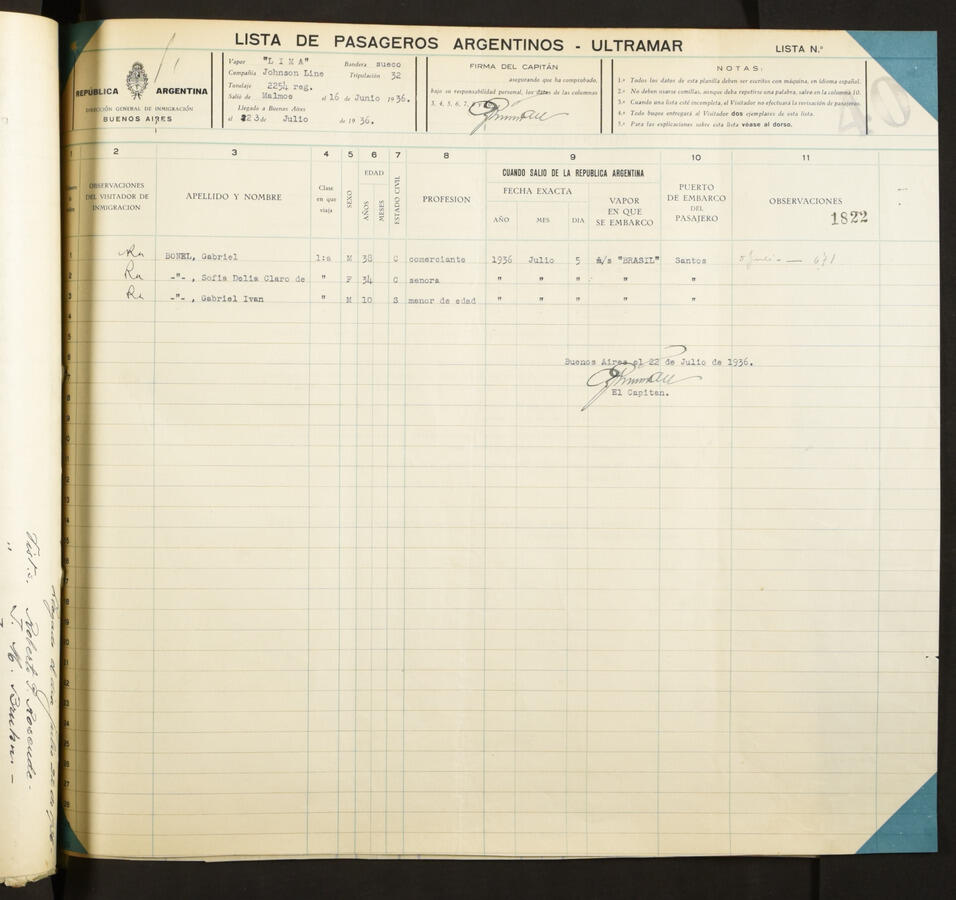 LISTA DE PASAGEROS ARGENTINOS - ULTRAMAR
LISTA N.º
REPÚBLICA ARGENTINA
DIRECCIÓN GENERAL DE INMIGRACIÓN
BUENOS AIRES
Vapor "L I M A" Bandera sueco
Compañía Johnson Line Tripulación 32
Tonelaje 2254 reg.
Salió de Malmoe el 16 de Junio 1936.
Llegado a Buenos Aires
el 223 de Julio de 1936.
FIRMA DEL CAPITÁN
asegurando que ha comprobado,
bajo su responsabilidad personal, los datos de las columnas
3, 4, 5, 6, 7,
NOTAS:
1.ª Todos los datos de esta planilla deben ser escritos con máquina, en idioma español.
2.ª No deben usarse comillas, aunque deba repetirse una palabra, salvo en la columna 10.
3.ª Cuando una lista esté incompleta, el Visitador no efectuará la revisación de pasajeros.
4.ª Todo buque entregará al Visitador dos ejemplares de esta lista.
5.ª Para las explicaciones sobre esta lista véase al dorso.
40
1 2 3 4 5 6 7 8 9 10 11
OBSERVACIONES DEL VISITADOR DE INMIGRACION
APELLIDO Y NOMBRE
Clase en que viaja
SEXO
EDAD
AÑOS
MESES
ESTADO CIVIL
PROFESION
CUANDO SALIO DE LA REPUBLICA ARGENTINA
FECHA EXACTA
AÑO MES DIA
VAPOR EN QUE SE EMBARCO
PUERTO DE EMBARCO DEL PASAJERO
OBSERVACIONES
1822
1 Ra BONEL, Gabriel 1:a M 38 C comerciante 1936 Julio 5 m/s "BRASIL" Santos
2 Ra -"- , Sofia Delia Claro de " F 34 C senora " " " " "
3 Ra -"- , Gabriel Ivan " M 10 S menor de edad " " " " "
Buenos Aires el 22 de Julio de 1936.
El Capitan.